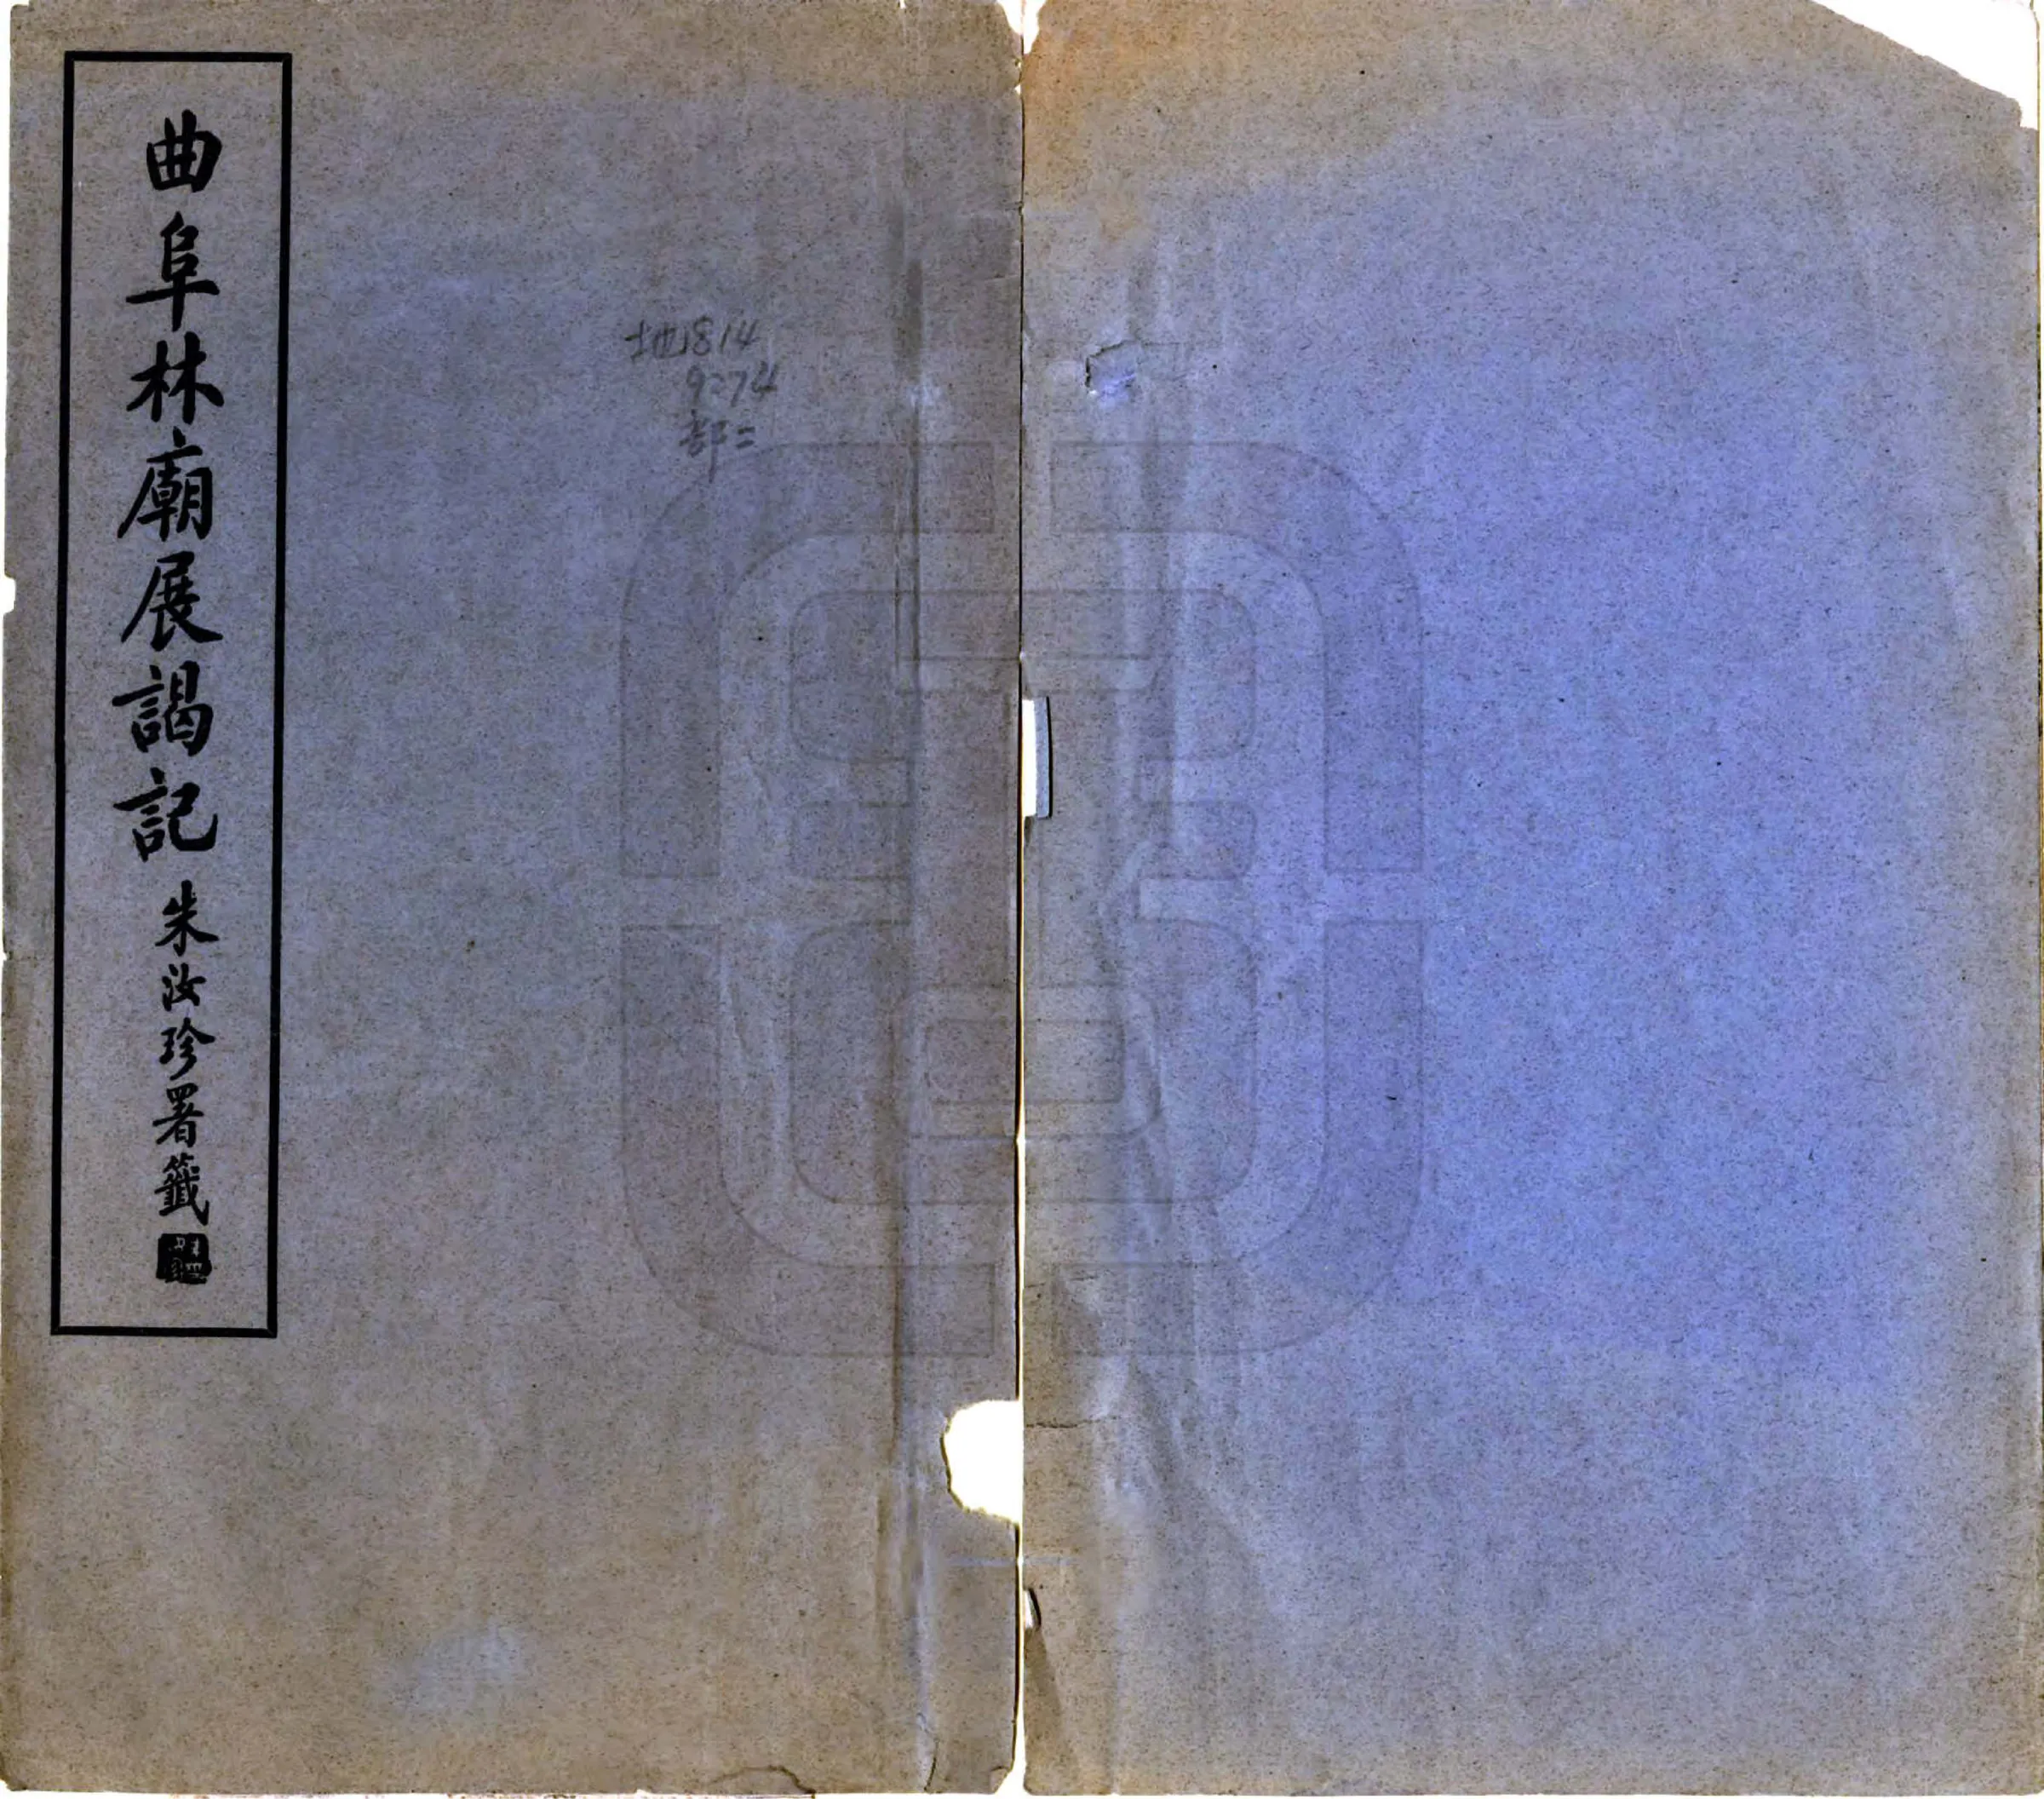 曲阜林廟展謁記 朱汝珍署籤
地1814
9274
部二